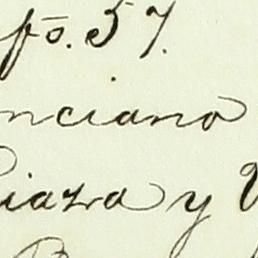 fo. 57.
nciano
iazra y